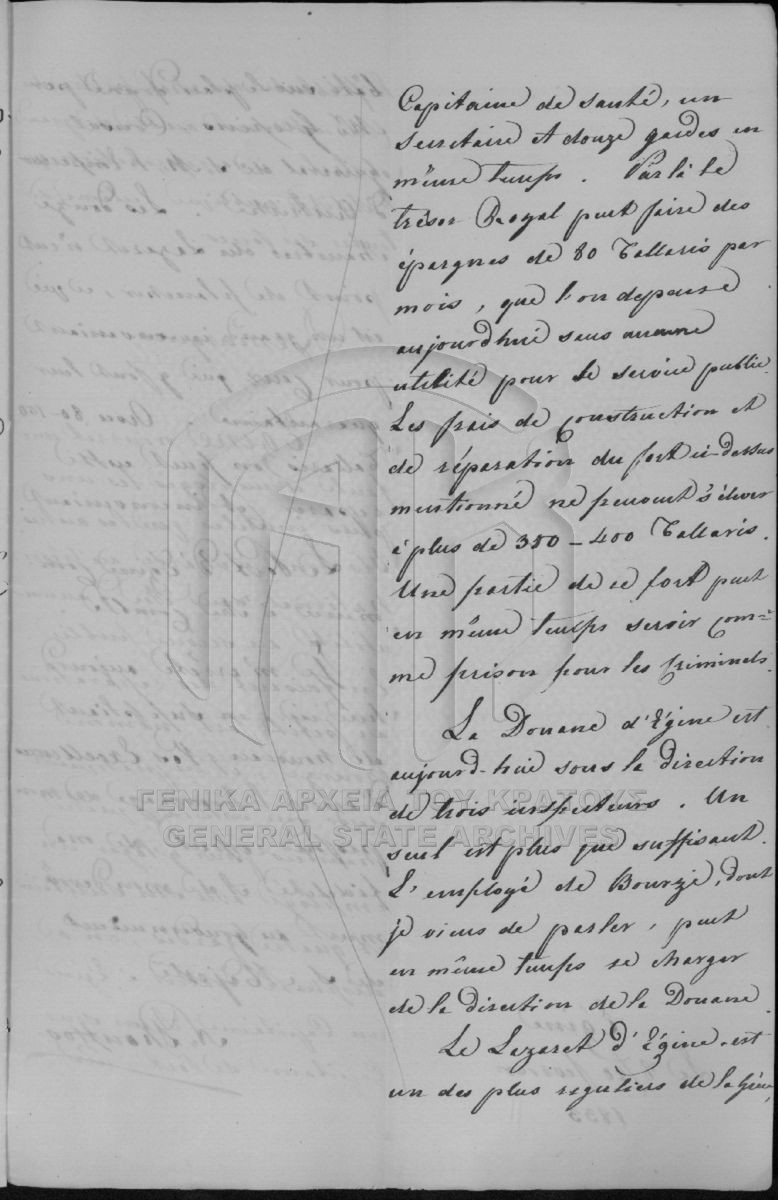 Capitaine de santé, un
secretaire et douze gardes en
même temps. Par là le
trésor Royal peut faire des
épargnes de 80 Tallaris par
mois, que l'on depense
aujourdhui sans aucune
utilité pour le service public.
Les frais de construction et
de réparation du fort ci-dessus
mentionné ne peuvent s'élever
à plus de 350 – 400 Tallaris.
Une partie de ce fort peut
en même temps servir com=
me prison pour les criminels.
La Douane d'Egine est
aujourd-hui sous la direction
de trois inspecteurs. Un
seul est plus que suffisant.
L'employé de Bourzi, dont
je viens de parler, peut
en même temps se charger
de la direction de la Douane.
Le Lazaret d'Egine est
un des plus reguliers de la Grèce,
ΓΕΝΙΚΑ ΑΡΧΕΙΑ ΤΟΥ ΚΡΑΤΟΥΣ
GENERAL STATE ARCHIVES